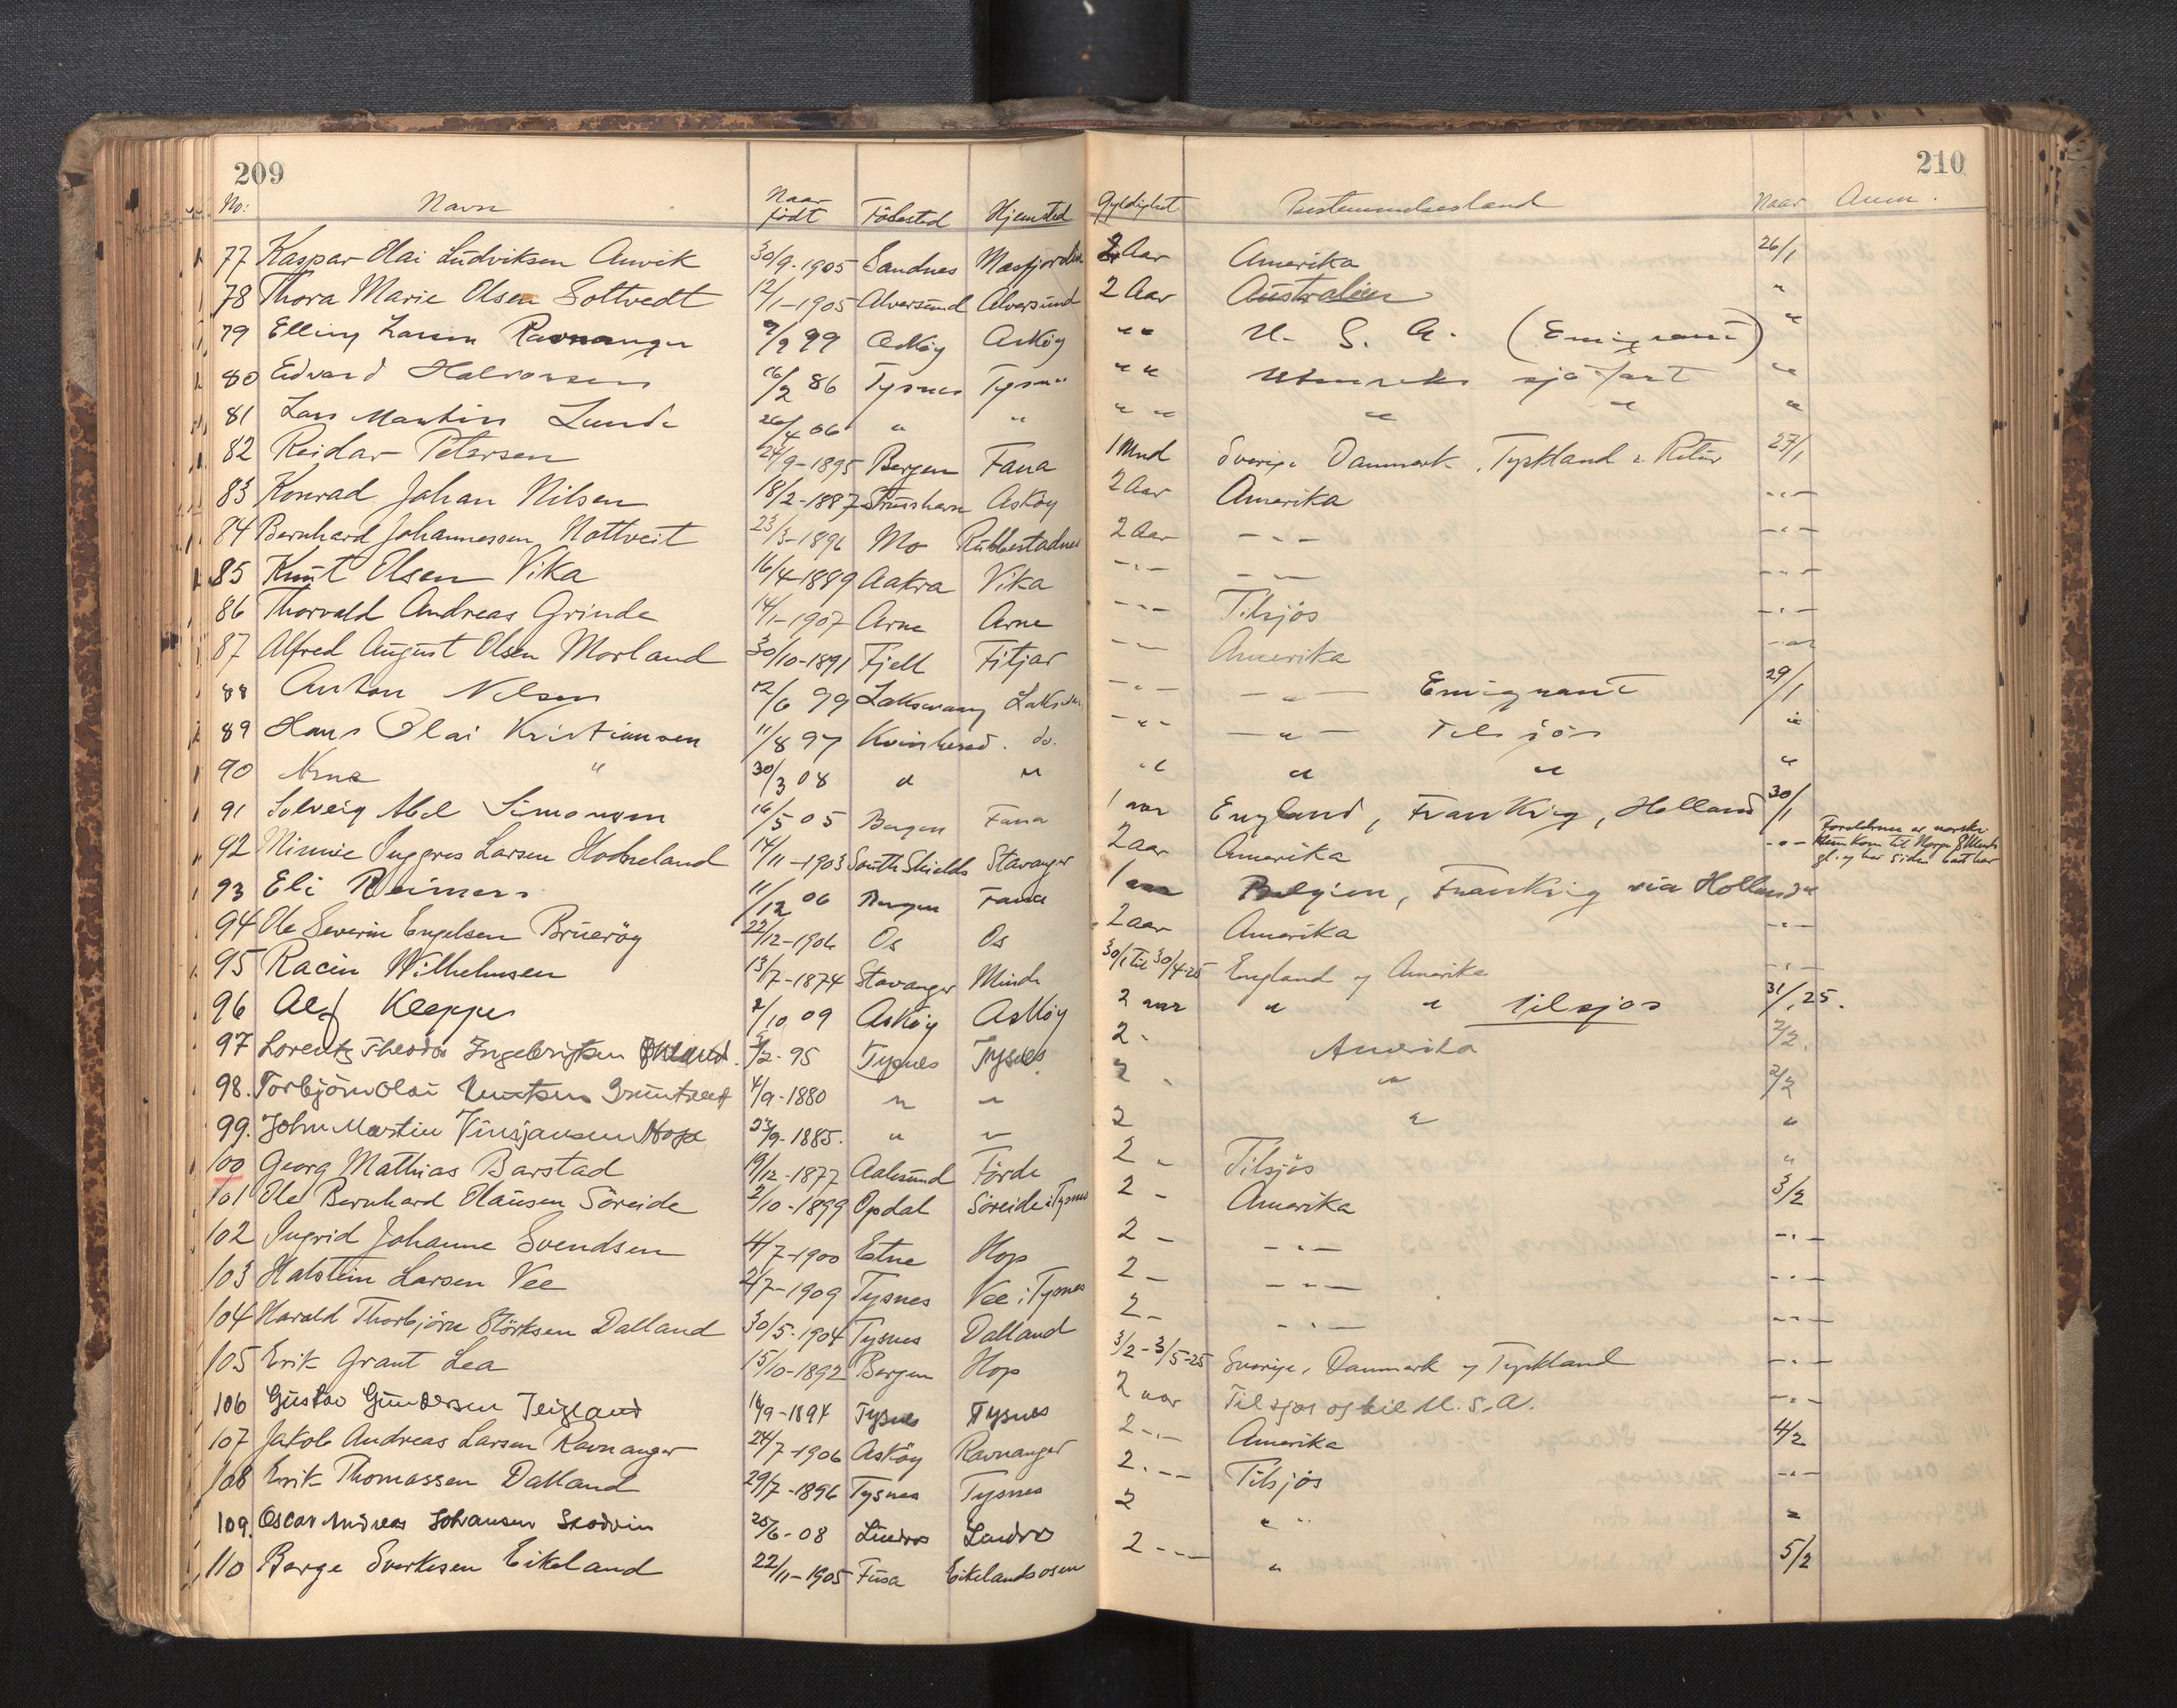 209
210
No: Navn Naar født Födested Hjemsted Gyldighet Bestemmelsesland Naar Anm.
77 Kaspar Olai Ludviksen Anvik 30/9-1905 Sandnes Masfjorden 2 Aar Amerika 26/1
78 Thora Marie Olsen Soltvedt 12/1-1905 Alversund Alversund 2 Aar Australien "
79 Elling Larsen Ravnanger 9/9 99 Asköy Asköy " " U. S. A. (Emigrant) "
80 Edvard Halvorsen 16/2 86 Tysnes Tysnes " " Utenriks sjöfart "
81 Lars Martin Lunde 26/4 06 " " " " " " "
82 Reidar Petersen 24/9-1895 Bergen Fana 1 Mnd Sverige Danmark, Tyskland & Retur 27/1
83 Konrad Johan Nilsen 18/2-1887 Strusshavn Asköy 2 Aar Amerika -"-
84 Bernhard Johannessen Nottveit 23/3-1896 Mo Rubbestadnes 2 Aar -"- -"-
85 Knut Olsen Vika 16/4-1889 Aakra Vika -"- -"- -"-
86 Thorvald Andreas Grinde 14/1-1907 Arne Arne -"- Tilsjös -"-
87 Alfred August Olsen Morland 30/10-1891 Fjell Fitjar -"- Amerika -"-
88 Anton Nilsen 12/6 99 Laksevaag -"- -"- Emigrant 29/1
89 Hans Olai Kristiansen 11/8 97 Kvinherad do. -"- -"- Tilsjös "
90 Arna " 30/3 08 " " " " " "
91 Solveig Abel Simonsen 16/5 05 Bergen Fana 1 aar England, Frankrig, Holland 30/1
92 Minnie Inggres Larsen Hodneland 14/11-1903 South Shields Stavanger 2 aar Amerika -"- Foreldrene er norske Hun kom til Norge 8 Mnds gl. og har siden hat her
93 Eli Reimers 11/12 06 Bergen Fana 1 aar Belgien, Frankrig via Holland "
94 Ole Severin Engelsen Bruerög 22/12-1906 Os Os 2 aar Amerika -"-
95 Racin Wilhelmsen 13/7-1874 Stavanger Minde 30/1 til 30/4-25 England og Amerika -"-
96 Alf Kleppe 2/10 09 Asköy Asköy 2 aar " " tilsjös 31/1 25.
97 Lorentz Theodor Ingebrigtsen /2-95 Tysnes Tysnes 2 - Amerika 2/2.
98. Torbjörn Olai Knutsen 4/9-1880 " " 2 - " 2/2
99. John Martin Hope 23/9-1885. " " 2 " "
100 Georg Mathias Barstad 19/12-1877 Aalesund Förde 2 - Tilsjös "
101 Ole Bernhard Olausen Söreide 2/10-1899 Opdal Söreide i Tysnes 2 - Amerika 3/2
102 Ingrid Johanne Svendsen 4/7-1900 Etne Hop 2 - -"- -"-
103 Halstein Larsen Vee 2/7-1909 Tysnes Vee i Tysnes 2 - -"- -"-
104 Harald Thorbjörn Störksen Dalland 30/5-1904 Tysnes Dalland 2 - -"- -"-
105 Erik Grant Lea 15/10-1892 Bergen Hop 3/2-3/5-25 Sverige, Danmark og Tyskland -"-
106 Gustav Gundersen Teigland 14/9-1894 Tysnes Tysnes 2 aar Til sjøs og til U.S.A. -"-
107 Jakob Andreas Larsen Ravnanger 24/7-1906 Asköy Ravnanger 2 -"- Amerika 4/2
108 Erik Thomassen Dalland 29/7-1896 Tysnes Tysnes 2 -"- Tilsjös -"-
109. Oscar Andreas Johansen Skodvin 25/6-08 Lindaas Lindaas 2 " " "
110 Børge Sverkesen Eikeland 22/11-1905 Fusa Eikelandsosen 2 -"- " 5/2